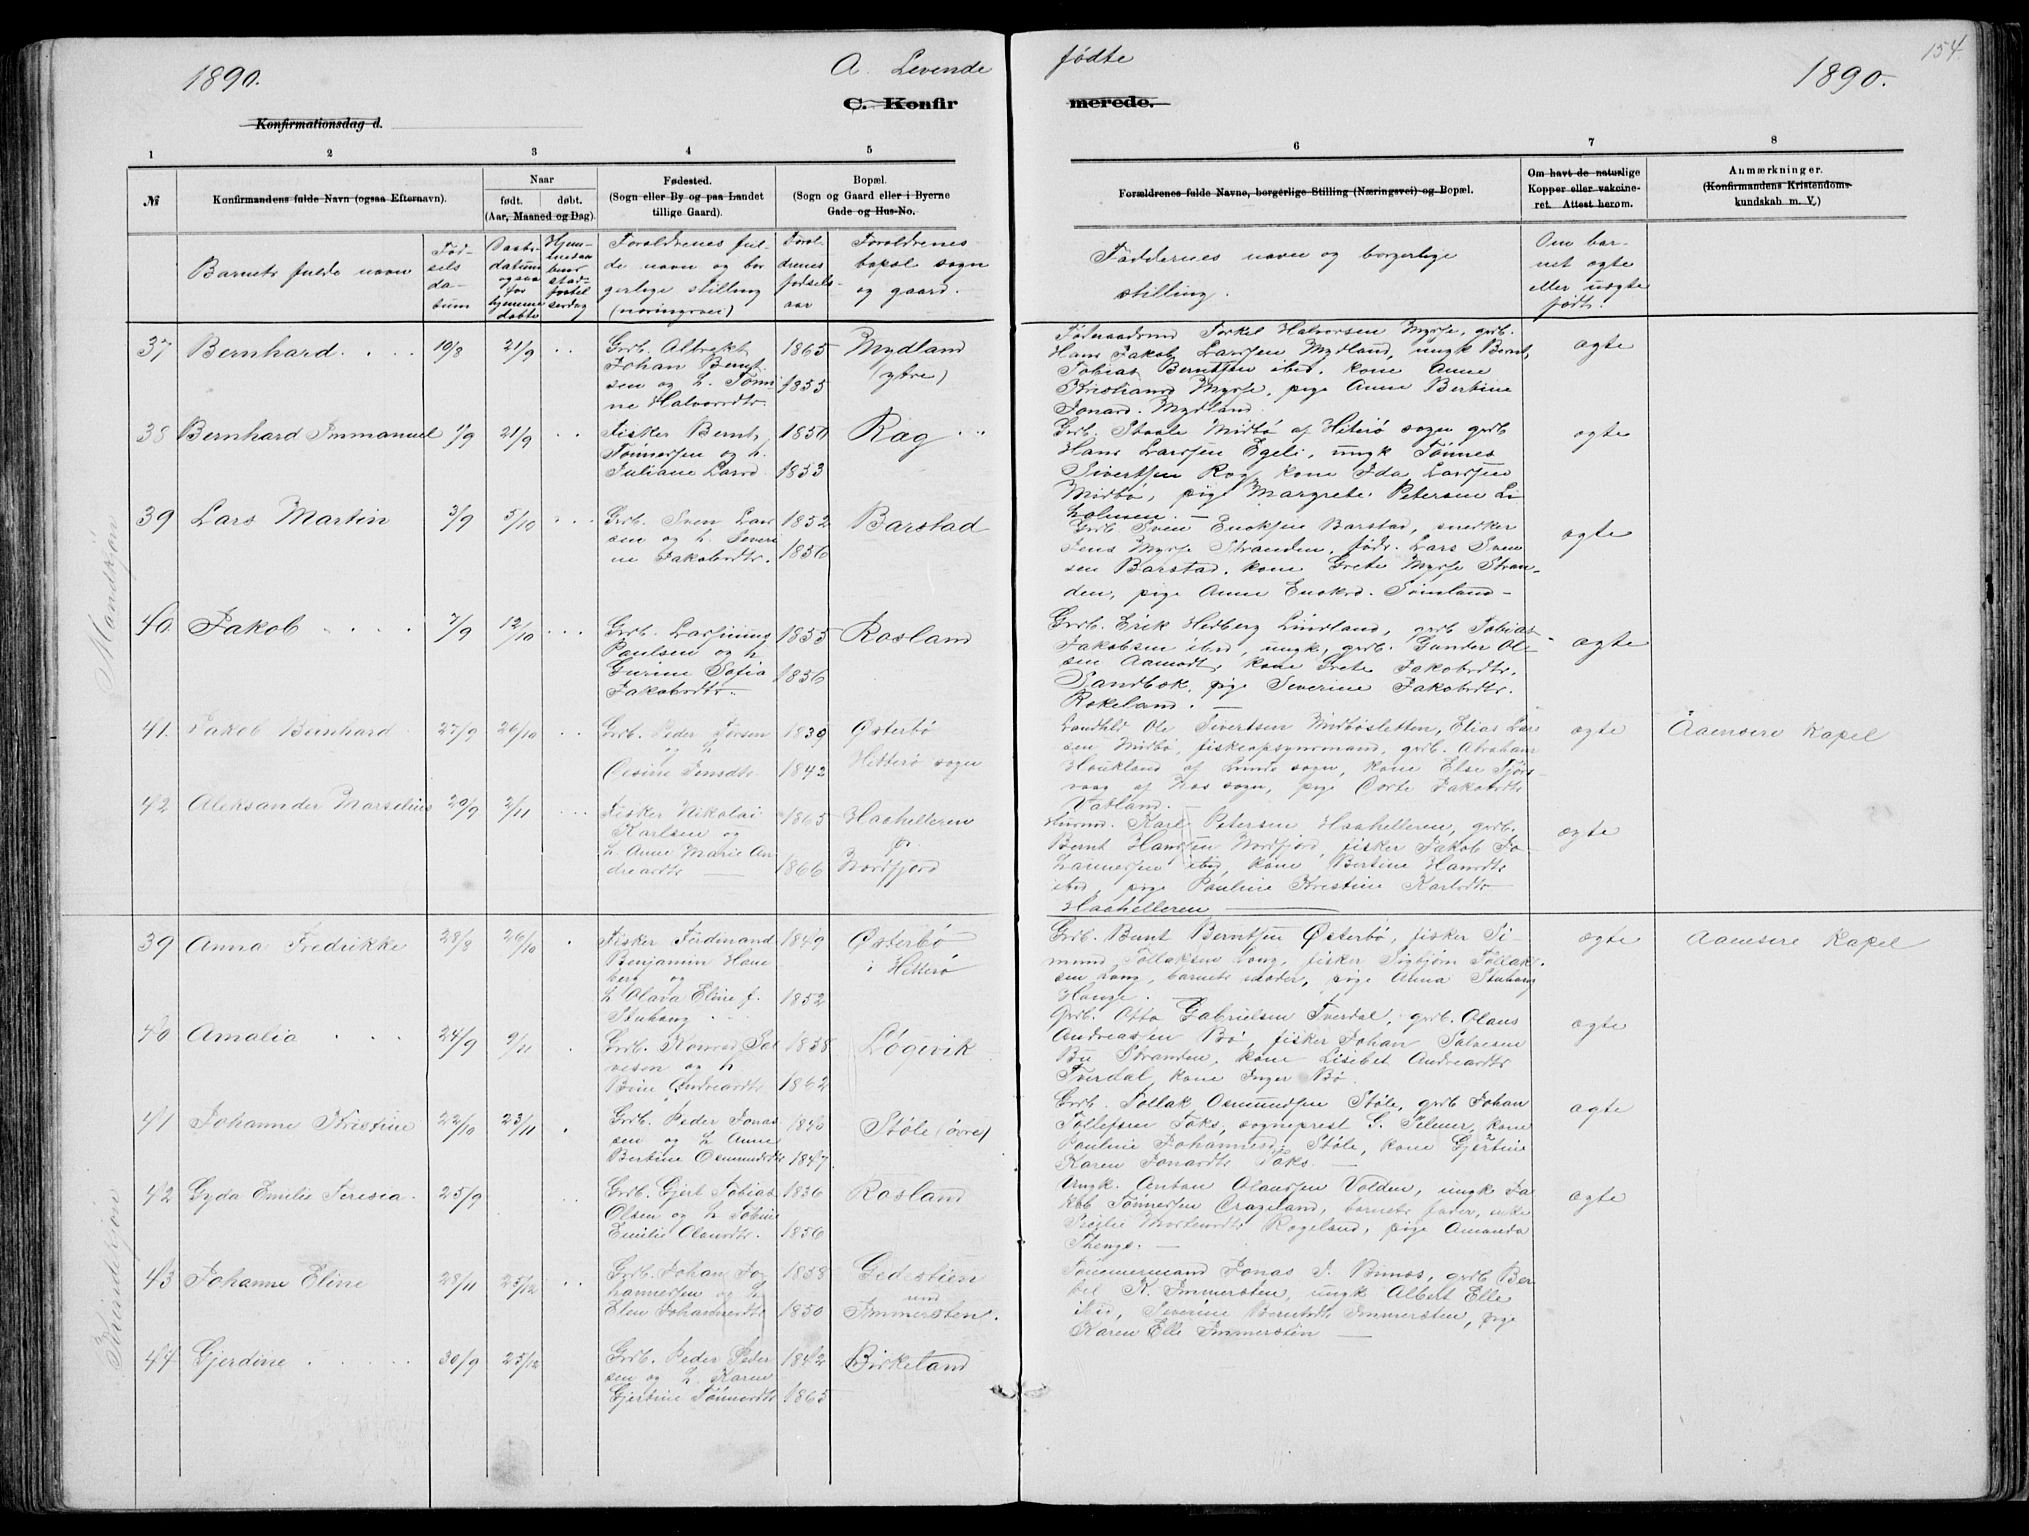 1890.
A. Levende
fødte
1890.
154
C. Konfir
merede.
Konfirmationsdag d.
1 2 3 4 5
6 7 8
№
Konfirmandens fulde Navn (ogsaa Efternavn).
Naar
født. døbt.
(Aar, Maaned og Dag).
Fødested.
(Sogn eller By og paa Landet
tillige Gaard).
Bopæl.
(Sogn og Gaard eller i Byerne
Gade og Hus-No.
Forældrenes fulde Navne, borgerlige Stilling (Næringsvei) og Bopæl.
Om havt de naturlige
Kopper eller vakcine-
ret. Attest herom.
Anmærkninger.
(Konfirmandens Kristendoms-
kundskab m. V.)
Barnets fulde navn
Fød-
sels
da-
tum
Daabs-
datum
og saa
for
hjemme
døbte
Forældrenes ful-
de navn og bor
gerlige stilling
(næringsvei)
Foræl-
drenes
fødsels-
aar
Forældrenes
bopæl sogn
og gaard.
Faddernes navn og borgerlige
stilling.
Om bar-
net ægte
eller uægte
født.
Mandkjøn
37 Bernhard . . . 19/8 21/9 . .
Grb. Albrekt
Johan Bernt
sen og h. Tomi
ne Halvorsdtr.
1865
1855
Mydland
(ytre)
Hans Jakob Larssen Mydland, ungk Bernt
Tobias Berntsen ibid. kone Anne
Kristiansd Myrse, pige Anne Bertine
Jonasd. Mydland.
ægte
38 Bernhard Immanuel 1/9 21/9 . .
Fisker Bernt
Tønnessen og h.
Juliane Larsd.
1850
1853
Ræg . .
Grb. Staale Midbø af Hiterø sogn grb
Hans Larssen Egeli, ungk Tønnes
Sivertsen Ræg, kone Ida Larssen
Midbø, pige Margrete Petersen Li
holmen. —
ægte
39 Lars Martin 3/9 5/10 . . .
Grb. Sven Lar
sen og h. Severi
ne Jakobsdtr.
1852
1856
Barstad
Grb Sven Enoksen Barstad, snedker
Jens Myrse Stranden, fødr. Lars Sven
sen Barstad. kone Grete Myrse Stran-
den, pige Anne Enoksd. Tomland —
ægte
40 Jakob . . . . 7/9 12/10 . . .
Grb. Larsinius
Paulsen og h
Gurine Sofia
Jakobsdtr.
1855
1856
Rosland
Grb. Erik Hedberg Lindland, grb Tobias
Jakobsen ibid, ungk, grb. Gunder Ol
sen Aamodt, kone Grete Jakobsdtr.
Sandbæk, pige Severine Jakobsdtr.
Rokeland. —
ægte
41. Jakob Bernhard 27/9 26/10 . .
Grb. Peder Torsen
og h
Oesine Jensdtr
1839
1842
Østerbø
Hitterø sogn
Landhdl Ole Sivertsen Midbøsletten, Elias Lar
sen Midbø, fiskeopsynsmand, grb. Abraham
Haukland af Lunde sogn, kone Else
vaag af Næs sogn, pige Dorte Jakobsdtr
Vatland. —
ægte
Aaensere Kapel
42 Aleksander Marselius 20/9 2/11 . . .
Fisker Nikolai
Karlsen og
h. Anne Marie An
dreasdtr —
1865
1866
Haahelleren
pr.
Nordfjord
Husmd. Karl Petersen Haahelleren, grb.
Bernt Hanssen Nordfjord, fisker Jakob Jo-
hannessen ibid, kone Bertine Hansdtr
ibid, pige Pauline Kristine Karlsdtr
Haahelleren —
ægte
Kvindekjøn
39 Anna Fredrikke 28/8 26/10 .
Fisker Ferdinand
Benjamin Haue
berg og
h Olava Eline f.
Stuhaug . . .
1849
1852
Østerbø
i Hitterø
Grb. Bent Berntsen Østerbø, fisker Si-
mund Tollaksen Long, fisker Sigbjørn Tollak-
sen Long, barnets moder, pige Anna Stuhaug
Hauge. —
ægte
Aaensere Kapel
40 Amalia . . . 24/9 9/11 .
Grb. Konrad Sal
vesen og h
Bine Andreasdtr
1858
1862
Løgevik
Grb. Otto Gabrielsen Tverdal, grb. Olaus
Andreassen Bø, fisker Johan Salvesen
Bu Stranden, kone Lisebet Andreasdtr
Tverdal, kone Inger Bø.
ægte
41 Johanne Kristine 22/10 23/11 .
Grb. Peder Jonas
sen og h Anne
Bertine Osmundsdtr
1840
1847.
Støle (øvre)
Grb. Tollak Osmundsen Støle, grb Johan
Tollefsen Foks, sogneprest S. Selmer, kone
Pauline Johannesd. Støle, kone Gjertine
Karen Jonasdtr Foks. —
ægte
42 Gyda Emilie Teresia. 25/9 . .
Grb. Gjert Tobias
Olsen og h Tobine
Emilie Olausdtr.
1836
1856
Rosland
Ungk. Anton Olaussen Volden, ungk Ja
kob Tønnessen Ørageland, barnets fader, enke
Mortensdtr Rageland, pige Amanda
Skenge. —
ægte
43 Johanne Eline 28/11 25/12 . .
Grb. Johan Jo
hannessen og h.
Elen Johannesdtr
1858
1850
Gedestien
und
Immersten.
Tømmermand Jonas J. Binus, grb Ber
tel K. Immersten, ungk Albert Elle
ibid, Severine Berntsdtr Immersten, pige
Karen Elle Immersten —
44 Gjerdine . . . . 30/9 25/12
Grb. Peder Peder
sen og h. Karen
Gjertine Tønnesdtr
1842
1865
Birkeland